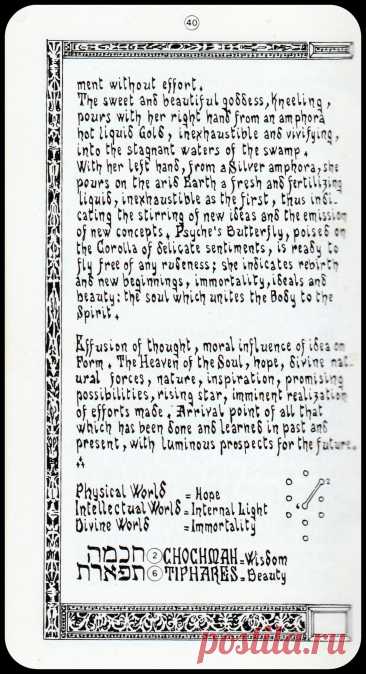 40
ment without effort.
The sweet and beautiful goddess, kneeling,
pours with her right hand from an amphora
hot liquid Gold, inexhaustible and vivifying,
into the stagnant waters of the swamp.
With her left hand, from a Silver amphora, she
pours on the arid Earth a fresh and fertilizing
liquid, inexhaustible as the first, thus indi-
cating the stirring of new ideas and the emission
of new concepts. Psyche's Butterfly, poised on
the Corolla of delicate sentiments, is ready to
fly free of any rudeness; she indicates rebirth
and new beginnings, immortality, ideals and
beauty: the soul which unites the Body to the
Spirit.
Effusion of thought, moral influence of idea on
Form. The Heaven of the Soul, hope, divine nat-
ural forces, nature, inspiration, promising
possibilities, rising star, imminent realization
of efforts made. Arrival point of all that
which has been done and learned in past and
present, with luminous prospects for the future.
Physical World = Hope
Intellectual World = Internal Light
Divine World = Immortality
2
6
חכמה 2 CHOCHMAH = Wisdom
תפארת 6 TIPHARES = Beauty
postila.ru